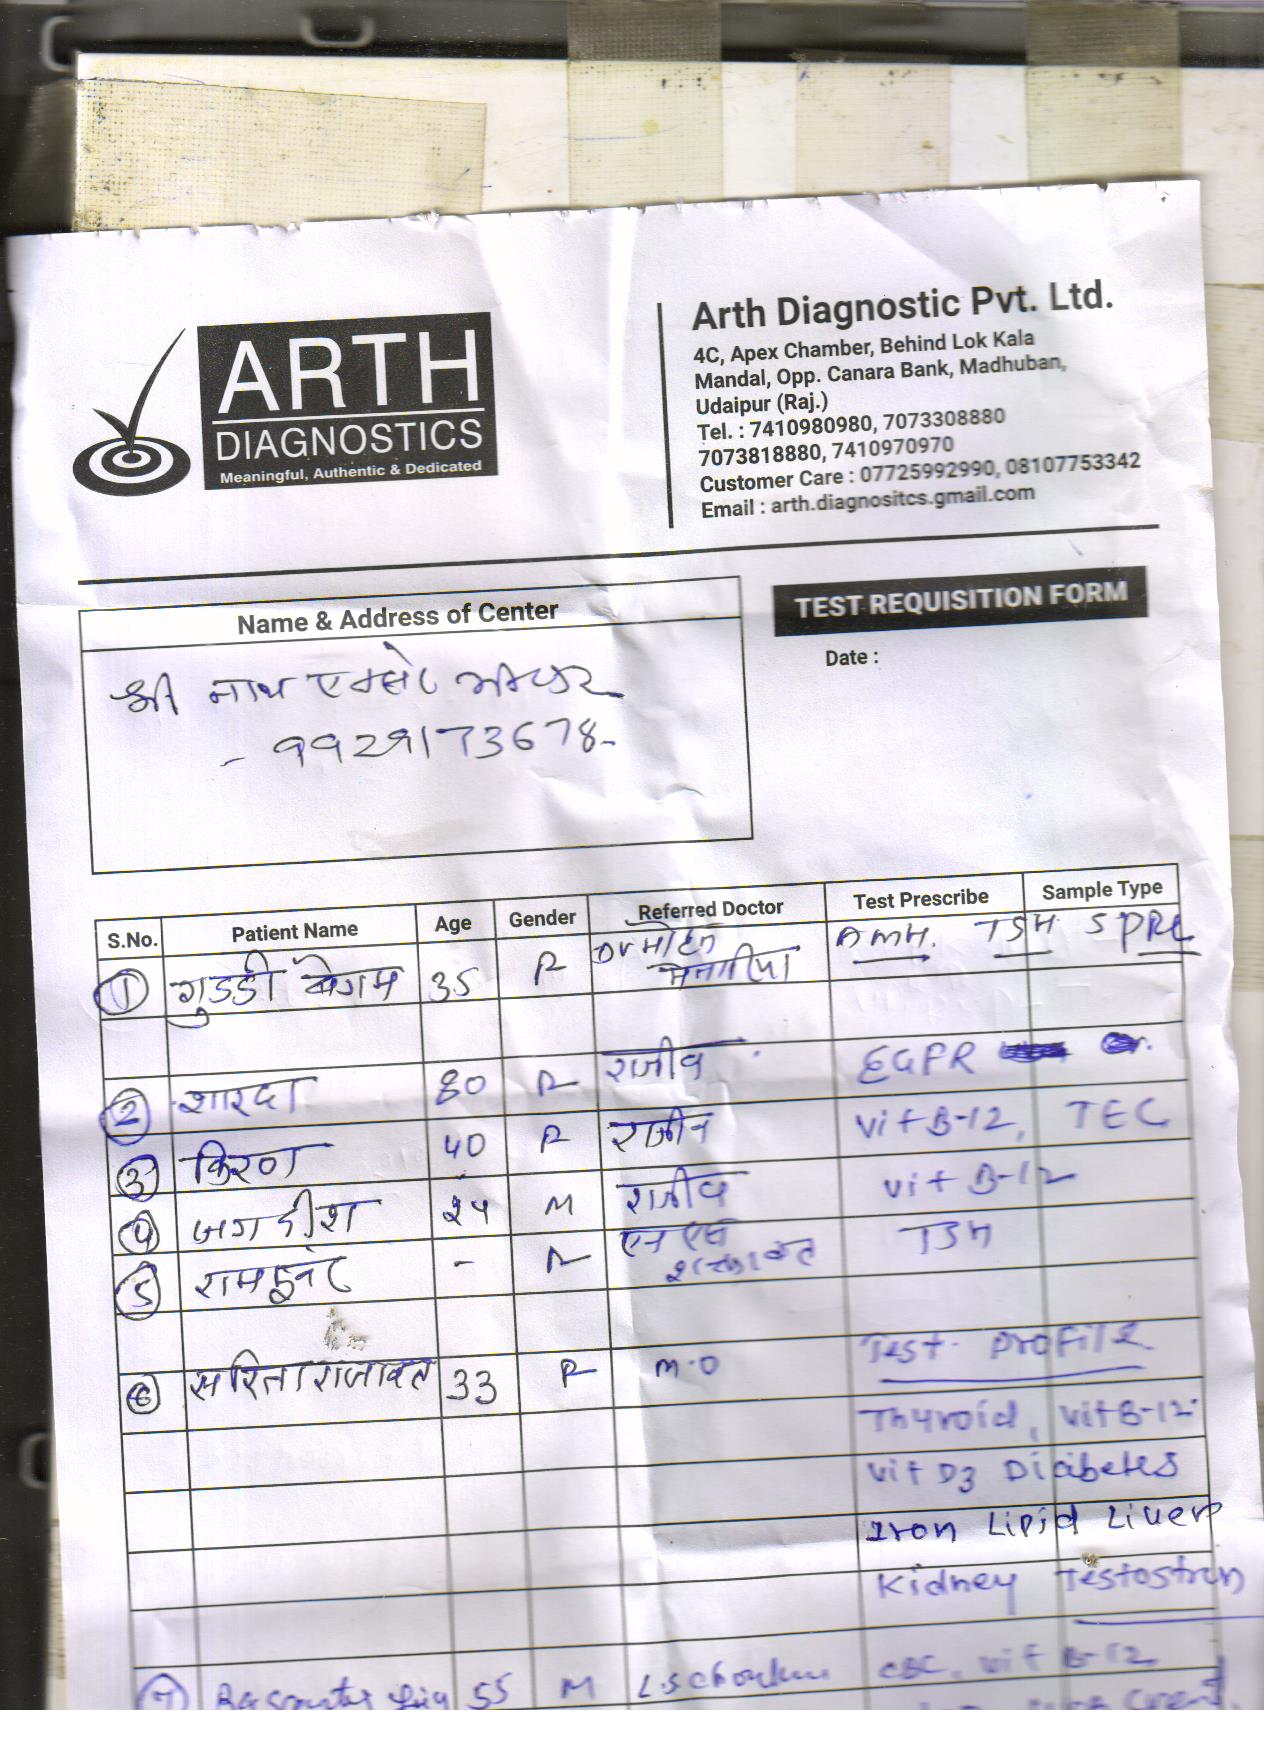 ARTH
DIAGNOSTICS
Meaningful, Authentic & Dedicated
Arth Diagnostic Pvt. Ltd.
4C, Apex Chamber, Behind Lok Kala
Mandal, Opp. Canara Bank, Madhuban,
Udaipur (Raj.)
Tel. : 7410980980, 7073308880
7073818880, 7410970970
Customer Care : 07725992990, 08107753342
Email : arth.diagnositcs.gmail.com
Name & Address of Center
TEST REQUISITION FORM
Date :
श्री नाथ
- 9929173678-
S.No. Patient Name Age Gender Referred Doctor Test Prescribe Sample Type
1 गुडडी बेगम 35 F Dr मोहन AMH. TSH S PRL
2 शारदा 80 F राजीव EGFR
3 किरण 40 F राजीव Vit B-12, TEC
4 जगदीश 24 M राजीव Vit B-12
5 - F TSH
6 सरिता राजावत 33 F M.O Test. Profile
Thyroid, Vit B-12.
Vit D3 Diabetes
Iron Lipid Liver
Kidney Testostrun
7 55 M CBC, Vit B-12